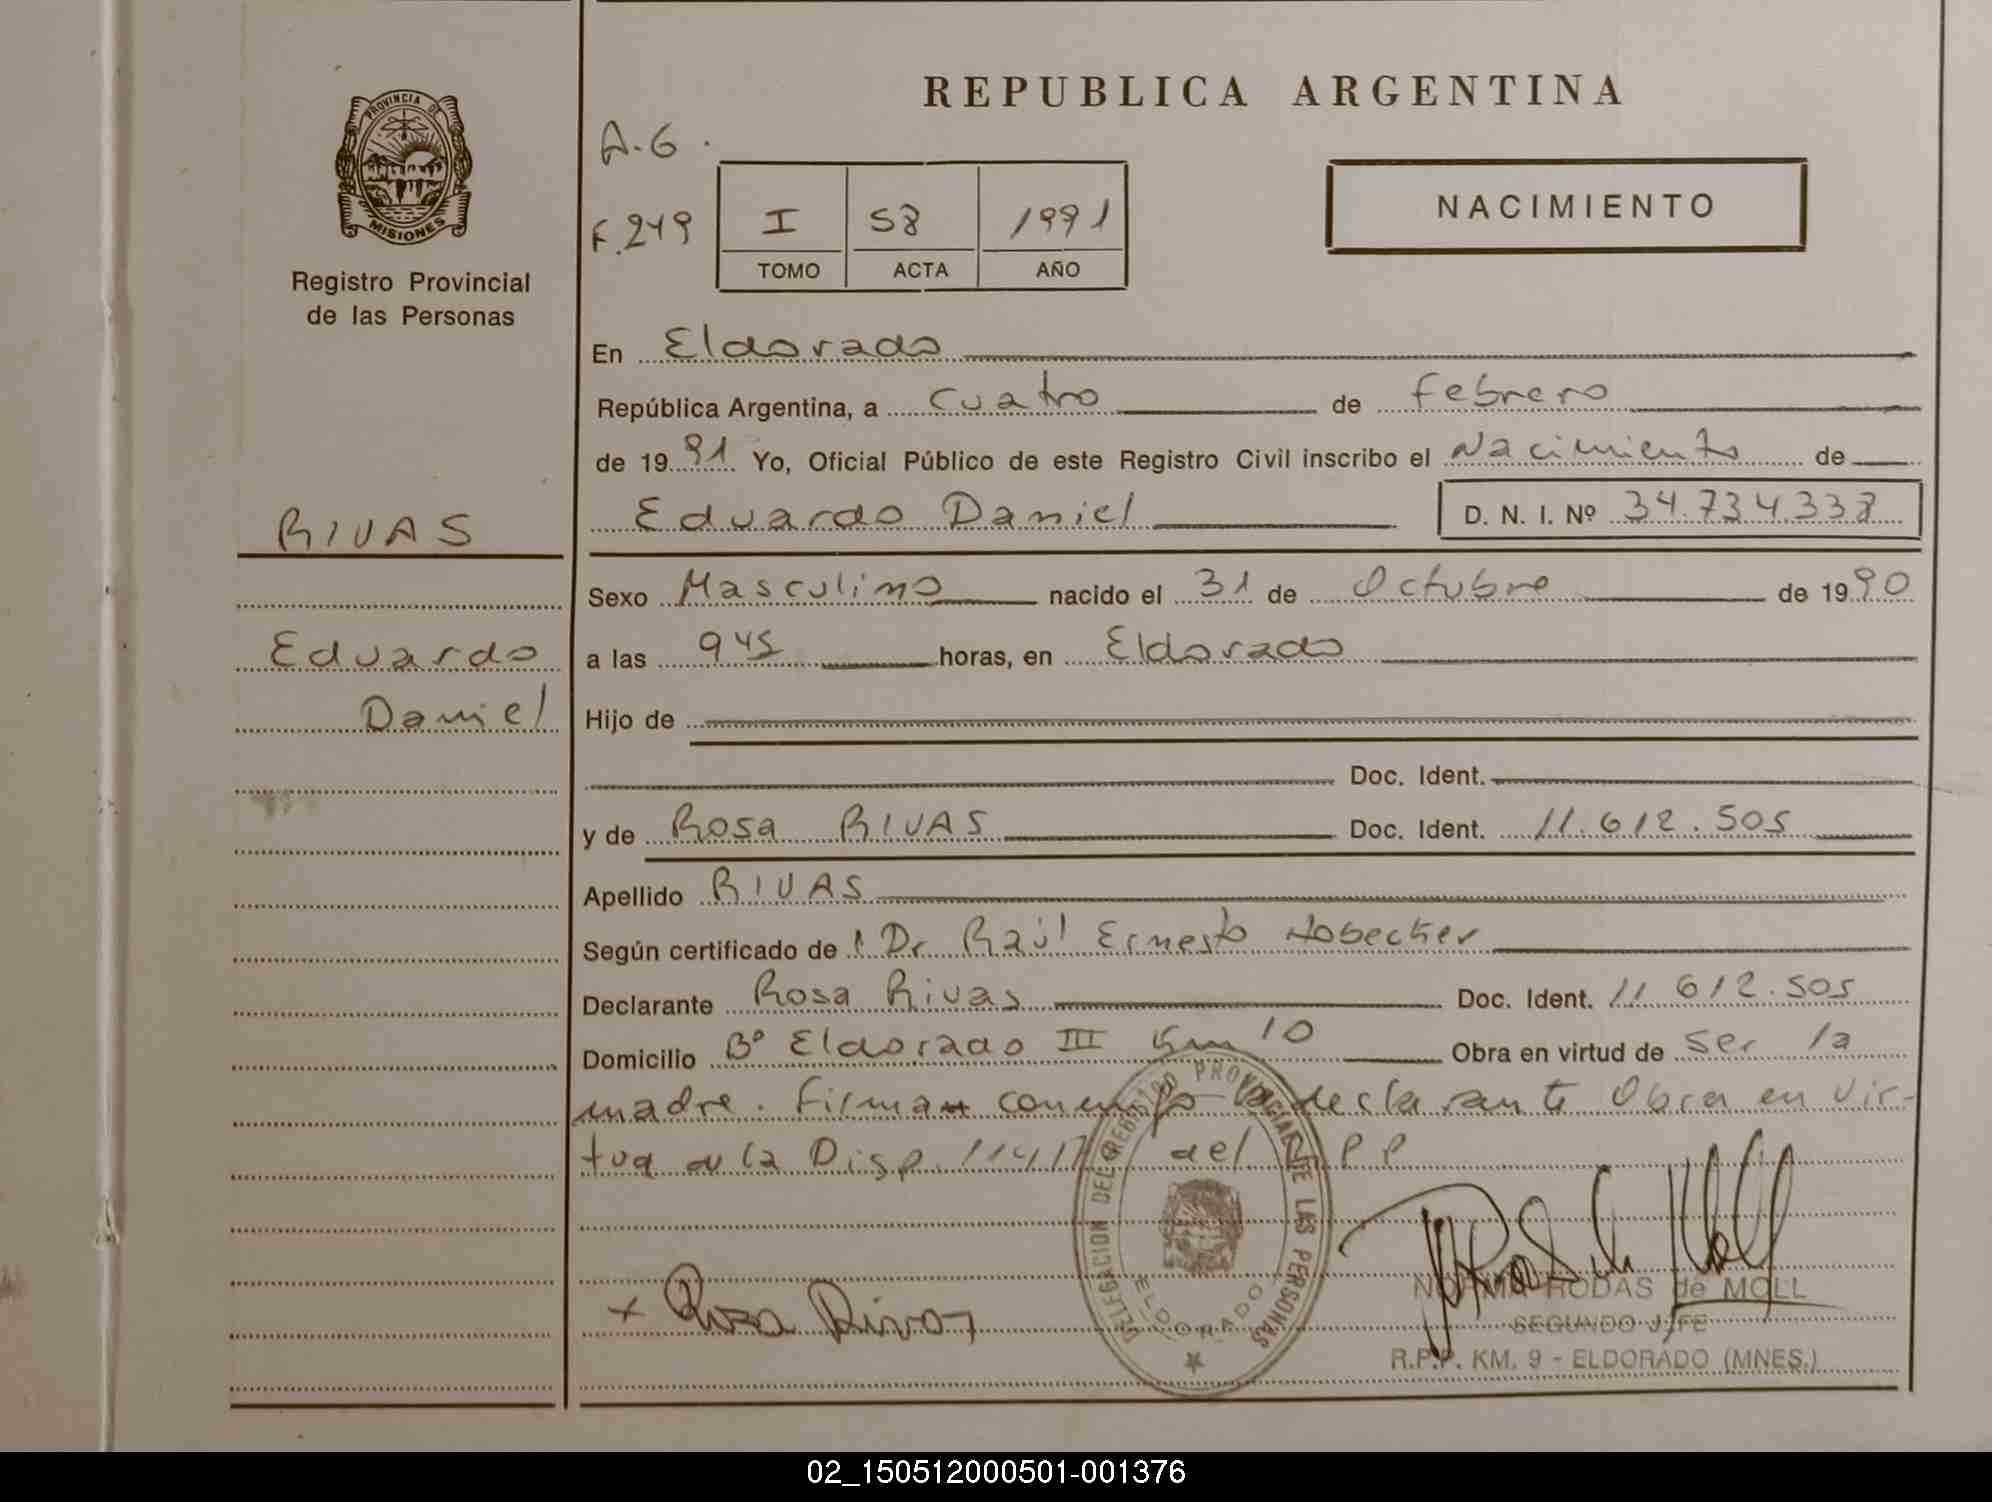 PROVINCIA DE
MISIONES
Registro Provincial
de las Personas
RIVAS
Eduardo
Daniel
REPUBLICA ARGENTINA
A.G.
F.249
I 58 1991
TOMO ACTA AÑO
NACIMIENTO
En Eldorado
República Argentina, a cuatro de febrero
de 1991 Yo, Oficial Público de este Registro Civil inscribo el Nacimiento de
Eduardo Daniel D. N. I. Nº 34.734.338
Sexo Masculino nacido el 31 de Octubre de 1990
a las 9 45 horas, en Eldorado
Hijo de
Doc. Ident.
y de Rosa RIVAS Doc. Ident. 11.612.505
Apellido RIVAS
Según certificado de Dr. Raúl Ernesto
Declarante Rosa Rivas Doc. Ident. 11 612.505
Domicilio Bº Eldorado III Km 10 Obra en virtud de ser la
madre. Firma conmigo la declarante Obra en vir-
tud de la Disp. del
DELEGACION DEL REGISTRO PROVINCIAL DE LAS PERSONAS
ELDORADO
x Rosa Rivas
NORMA RODAS de MOLL
SEGUNDO JEFE
R.P.P. KM. 9 - ELDORADO (MNES.)
02_150512000501-001376